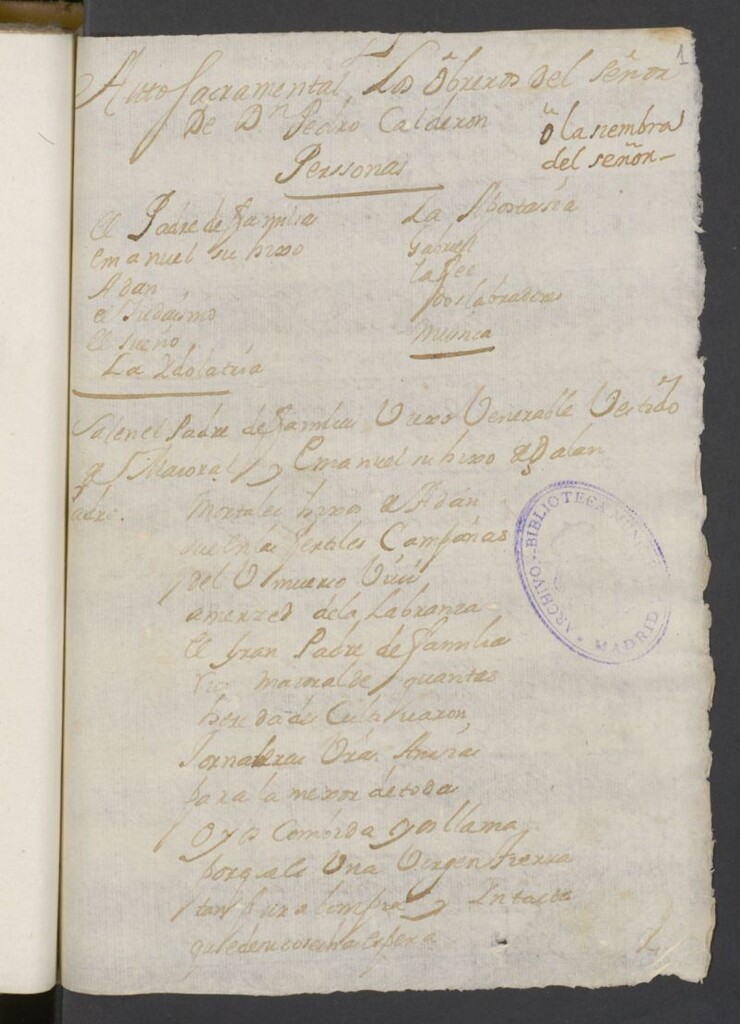 1
Auto Sacramental, Los obreros del señor
De Dn Pedro Calderon
ô la siembra
del señor
Perssonas
el Padre de familia
emanuel su hixo
Adan
el Judaismo
el sueño
La Ydolatria
La Apostasia
Gabriel
la fee
dos labradores
musica
Salen el Padre de familia Viexo Venerable Vestido
de Maioral y Emanuel su hixo de Galan
Padre. Mortales hixos de Adan
que en las fertiles Campañas
del Vniuerso Viuis
a merzed de la labranza
el gran Padre de familia
maioral de quantas
heredades Cultiuaron
para la mexor de toda
oy os Combida y os llama
porq ai Una Virgen tierra
tan pura limpia y Intacta
que de su cosecha espera
ARCHIVO · BIBLIOTECA
MADRID